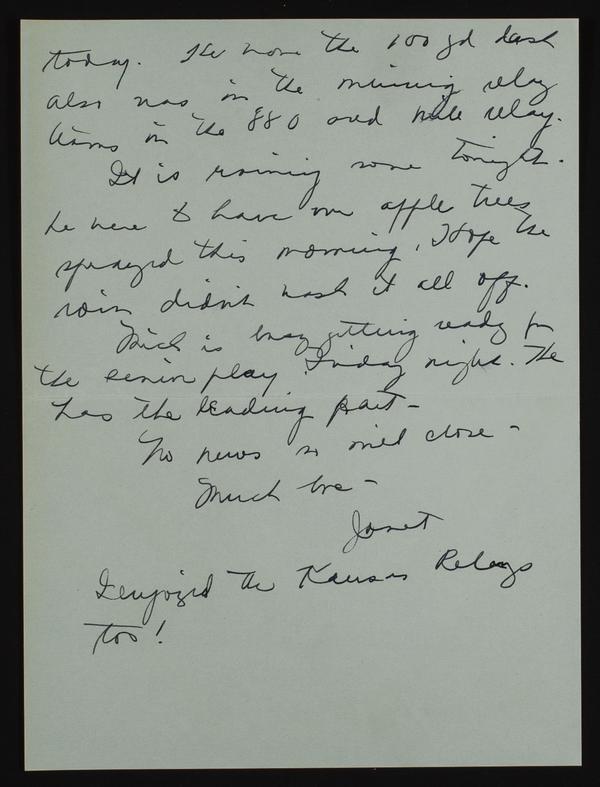 today. He won the 100 yd dash
also was in the winning relay
teams in the 880 and mile relay.
It is raining some tonight.
We were to have our apple trees
sprayed this morning, Hope the
rain didn't wash it all off.
is busy getting ready for
the senior play Friday night. He
has the leading part -
No news so will close -
Much love -
Janet
I enjoyed the Kansas Relays
too!